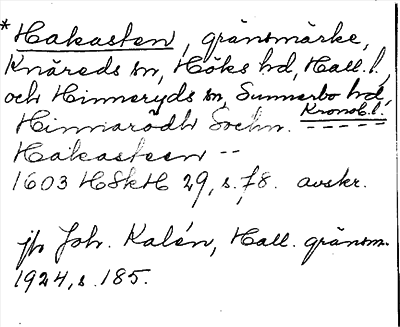 *Hakasten, gränsmärke,
Knäreds sn, Höks hd, Hall. l.,
och Hinneryds sn, Sunnerbo hd,
Kronob. l.
Hinnarödh Sochn.
Hakasteen --
1603 HSkH 29, s. 78. avskr.
jfr Joh. Kalén, Hall. gränsm.
1924, s. 185.